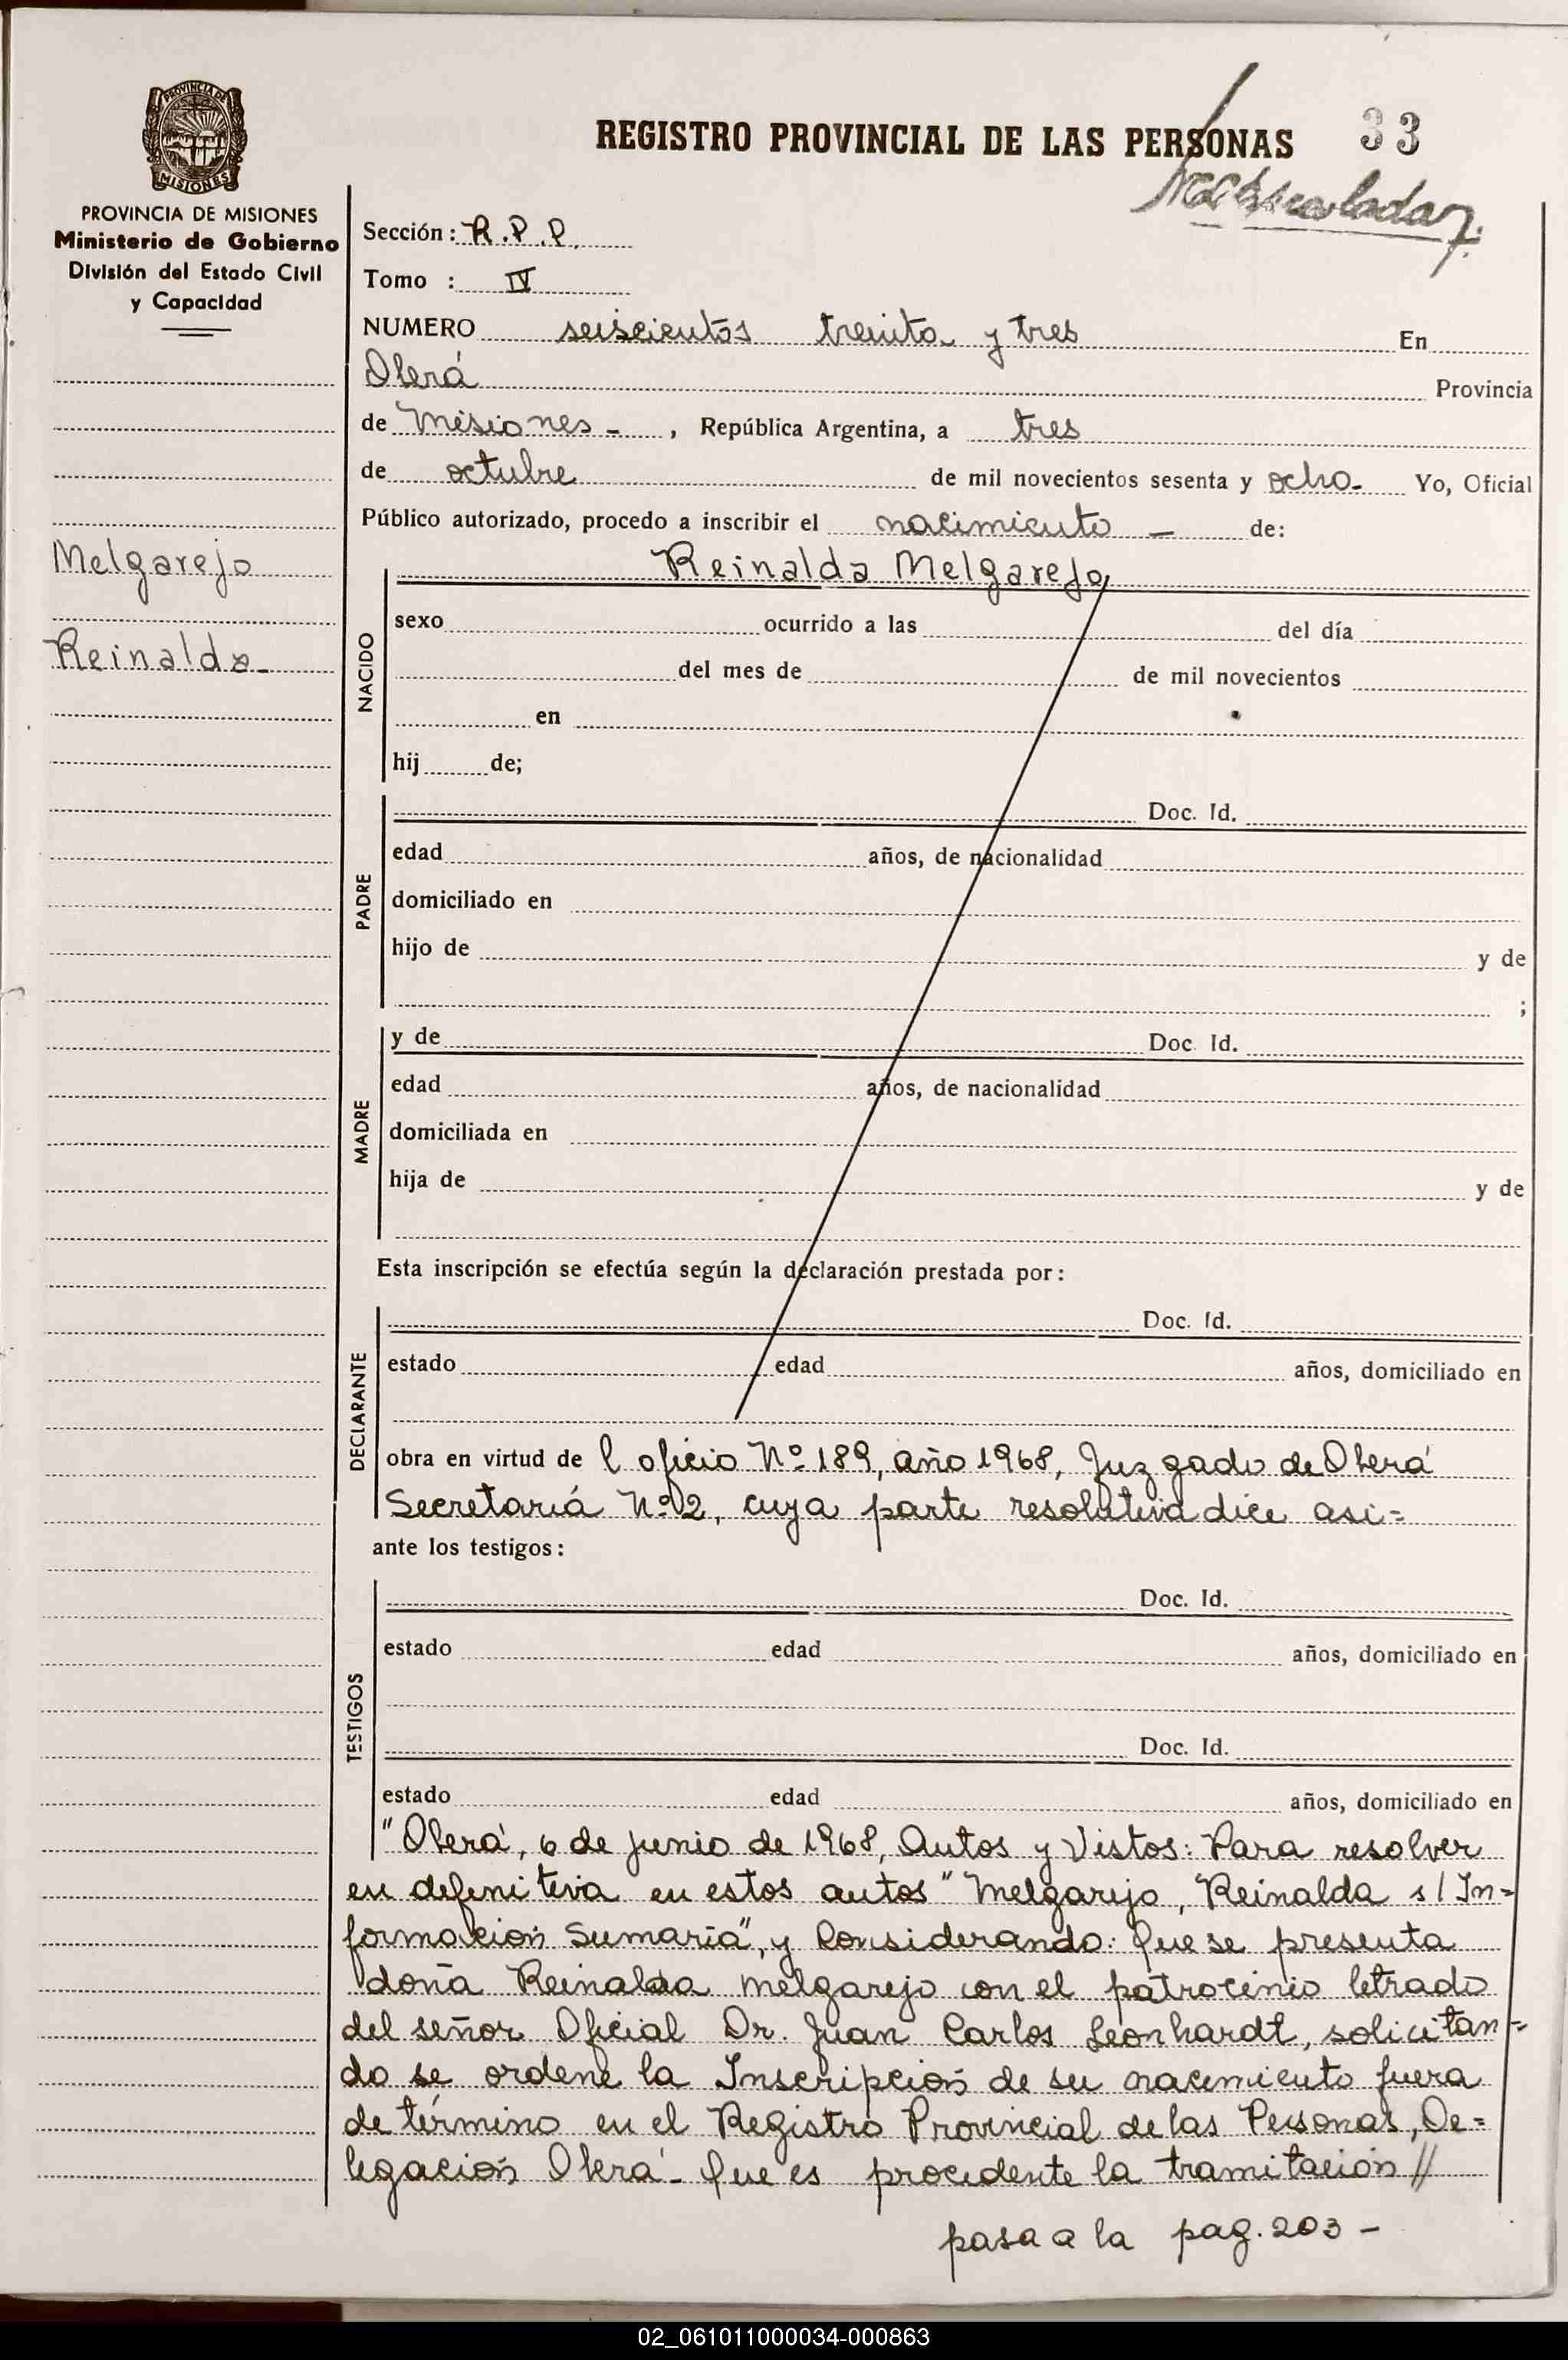 PROVINCIA DE
MISIONES
PROVINCIA DE MISIONES
Ministerio de Gobierno
División del Estado Civil
y Capacidad
Melgarejo
Reinalda
REGISTRO PROVINCIAL DE LAS PERSONAS 33
Sección: R.P.P.
Tomo : IV
NUMERO seiscientos treinta y tres En
Oberá Provincia
de Misiones - , República Argentina, a tres
de octubre de mil novecientos sesenta y ocho- Yo, Oficial
Público autorizado, procedo a inscribir el nacimiento - de:
Reinalda Melgarejo
NACIDO
sexo ocurrido a las del día
del mes de de mil novecientos
en
hij de;
PADRE
Doc. Id.
edad años, de nacionalidad
domiciliado en
hijo de y de
;
MADRE
y de Doc. Id.
edad años, de nacionalidad
domiciliada en
hija de y de
Esta inscripción se efectúa según la declaración prestada por:
DECLARANTE
Doc. Id.
estado edad años, domiciliado en
obra en virtud de l oficio Nº 189, año 1968, Juzgado de Oberá
Secretaría Nº 2, cuya parte resolutiva dice asi=
ante los testigos:
TESTIGOS
Doc. Id.
estado edad años, domiciliado en
Doc. Id.
estado edad años, domiciliado en
"Oberá, 6 de junio de 1968, Autos y Vistos: Para resolver
en definitiva en estos autos "Melgarejo, Reinalda s/ In=
formación Sumaria", y Considerando: Que se presenta
doña Reinalda Melgarejo con el patrocinio letrado
del señor Oficial Dr. Juan Carlos Leonhardt, solicitan=
do se ordene la Inscripción de su nacimiento fuera
de término en el Registro Provincial de las Personas, De=
legación Oberá- Que es procedente la tramitación //
pasa a la pag. 203 -
02_061011000034-000863